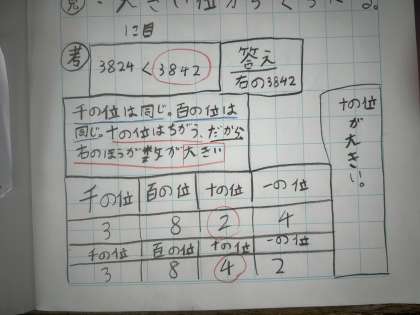 大きい位からくらべる。
に目
考
3824 < 3842
答え
右の3842
千の位は同じ。百の位は
同じ。十の位はちがう、だから
右のほうが数が大きい
十の位が大きい。
千の位 百の位 十の位 一の位
3 8 2 4
千の位 百の位 十の位 一の位
3 8 4 2